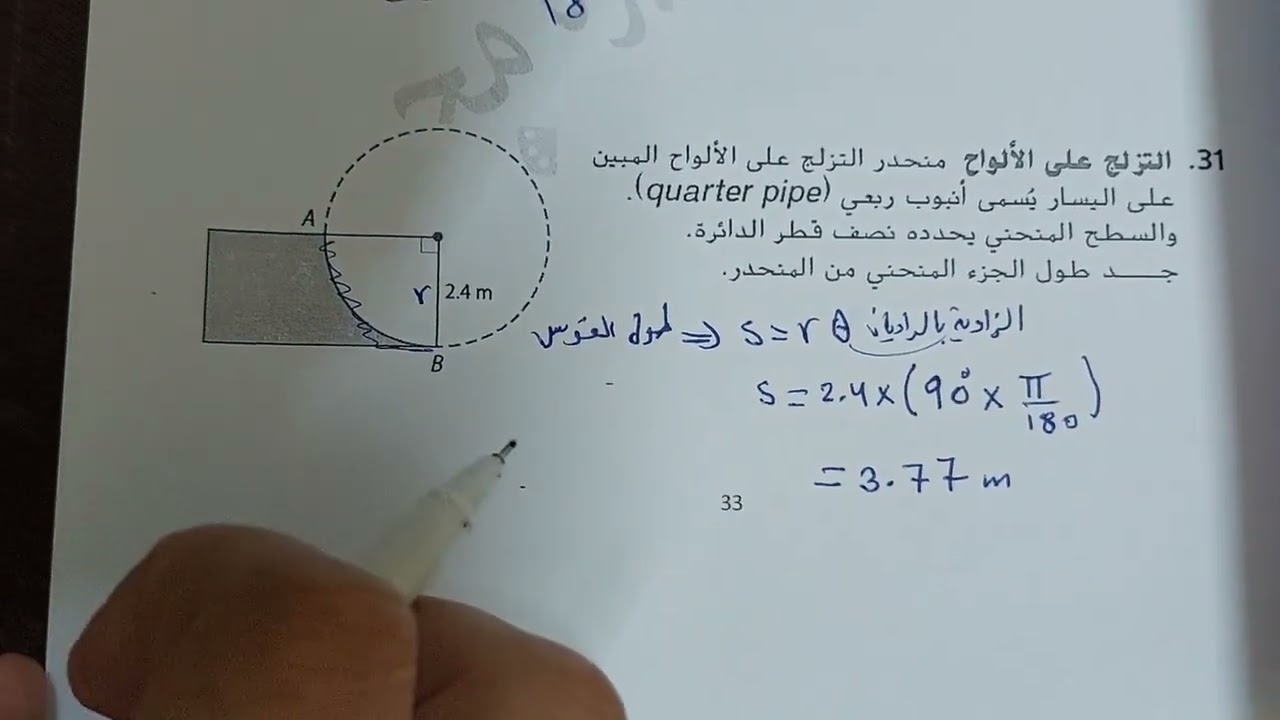 18
31. التزلج على الألواح منحدر التزلج على الألواح المبين
على اليسار يُسمى أنبوب ربعي (quarter pipe).
والسطح المنحني يحدده نصف قطر الدائرة.
جـــد طول الجزء المنحني من المنحدر.
A
r 2.4 m
B
الزاوية بالراديان
طول القوس ⇒ s = r θ
s = 2.4 × (90° × π/180)
= 3.77 m
33